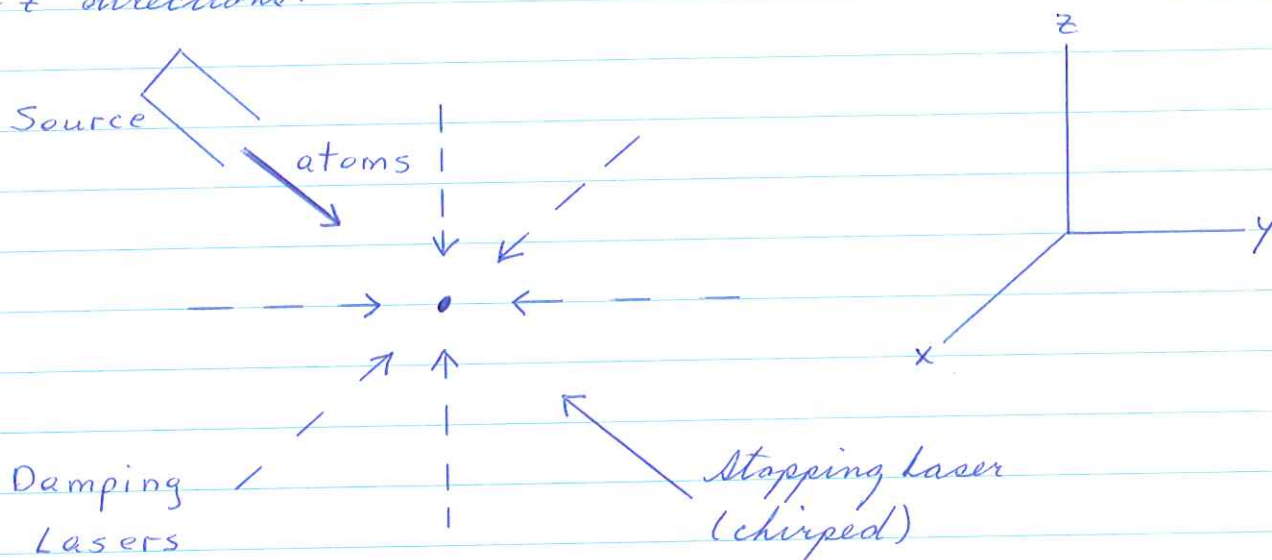 z directions.
z
Source
atoms
y
x
Damping
Lasers
Stopping Laser
(chirped)